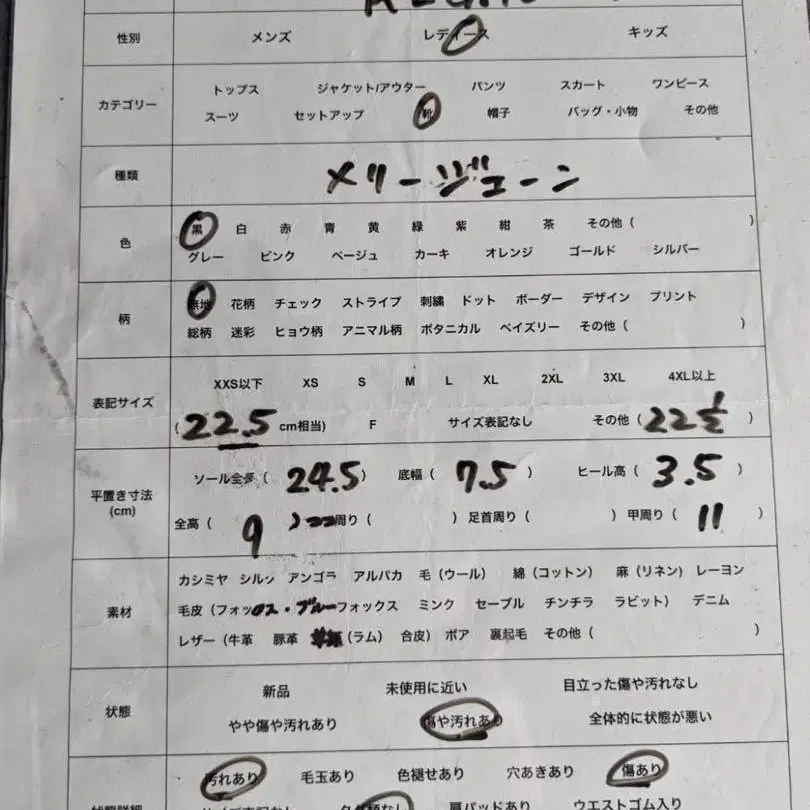 性別 メンズ レディース キッズ
カテゴリー
トップス ジャケット/アウター パンツ スカート ワンピース
スーツ セットアップ 靴 帽子 バッグ・小物 その他
種類 メリージェーン
色
黒 白 赤 青 黄 緑 紫 紺 茶 その他（ ）
グレー ピンク ベージュ カーキ オレンジ ゴールド シルバー
柄
無地 花柄 チェック ストライプ 刺繍 ドット ボーダー デザイン プリント
総柄 迷彩 ヒョウ柄 アニマル柄 ボタニカル ペイズリー その他（ ）
表記サイズ
XXS以下 XS S M L XL 2XL 3XL 4XL以上
（22.5 cm相当） F サイズ表記なし その他（22½ ）
平置き寸法
(cm)
ソール全長（24.5） 底幅（7.5） ヒール高（3.5）
全高（9 周り（ ） 足首周り（ ） 甲周り（11 ）
素材
カシミヤ シルク アンゴラ アルパカ 毛（ウール） 綿（コットン） 麻（リネン） レーヨン
毛皮（フォックス・ブルーフォックス ミンク セーブル チンチラ ラビット） デニム
レザー（牛革 豚革 （ラム） 合皮） ボア 裏起毛 その他（ ）
状態
新品 未使用に近い 目立った傷や汚れなし
やや傷や汚れあり 傷や汚れあり 全体的に状態が悪い
状態詳細
汚れあり 毛玉あり 色褪せあり 穴あきあり 傷あり
サイズ表記なし タグ類なし 肩パッドあり ウエストゴム入り